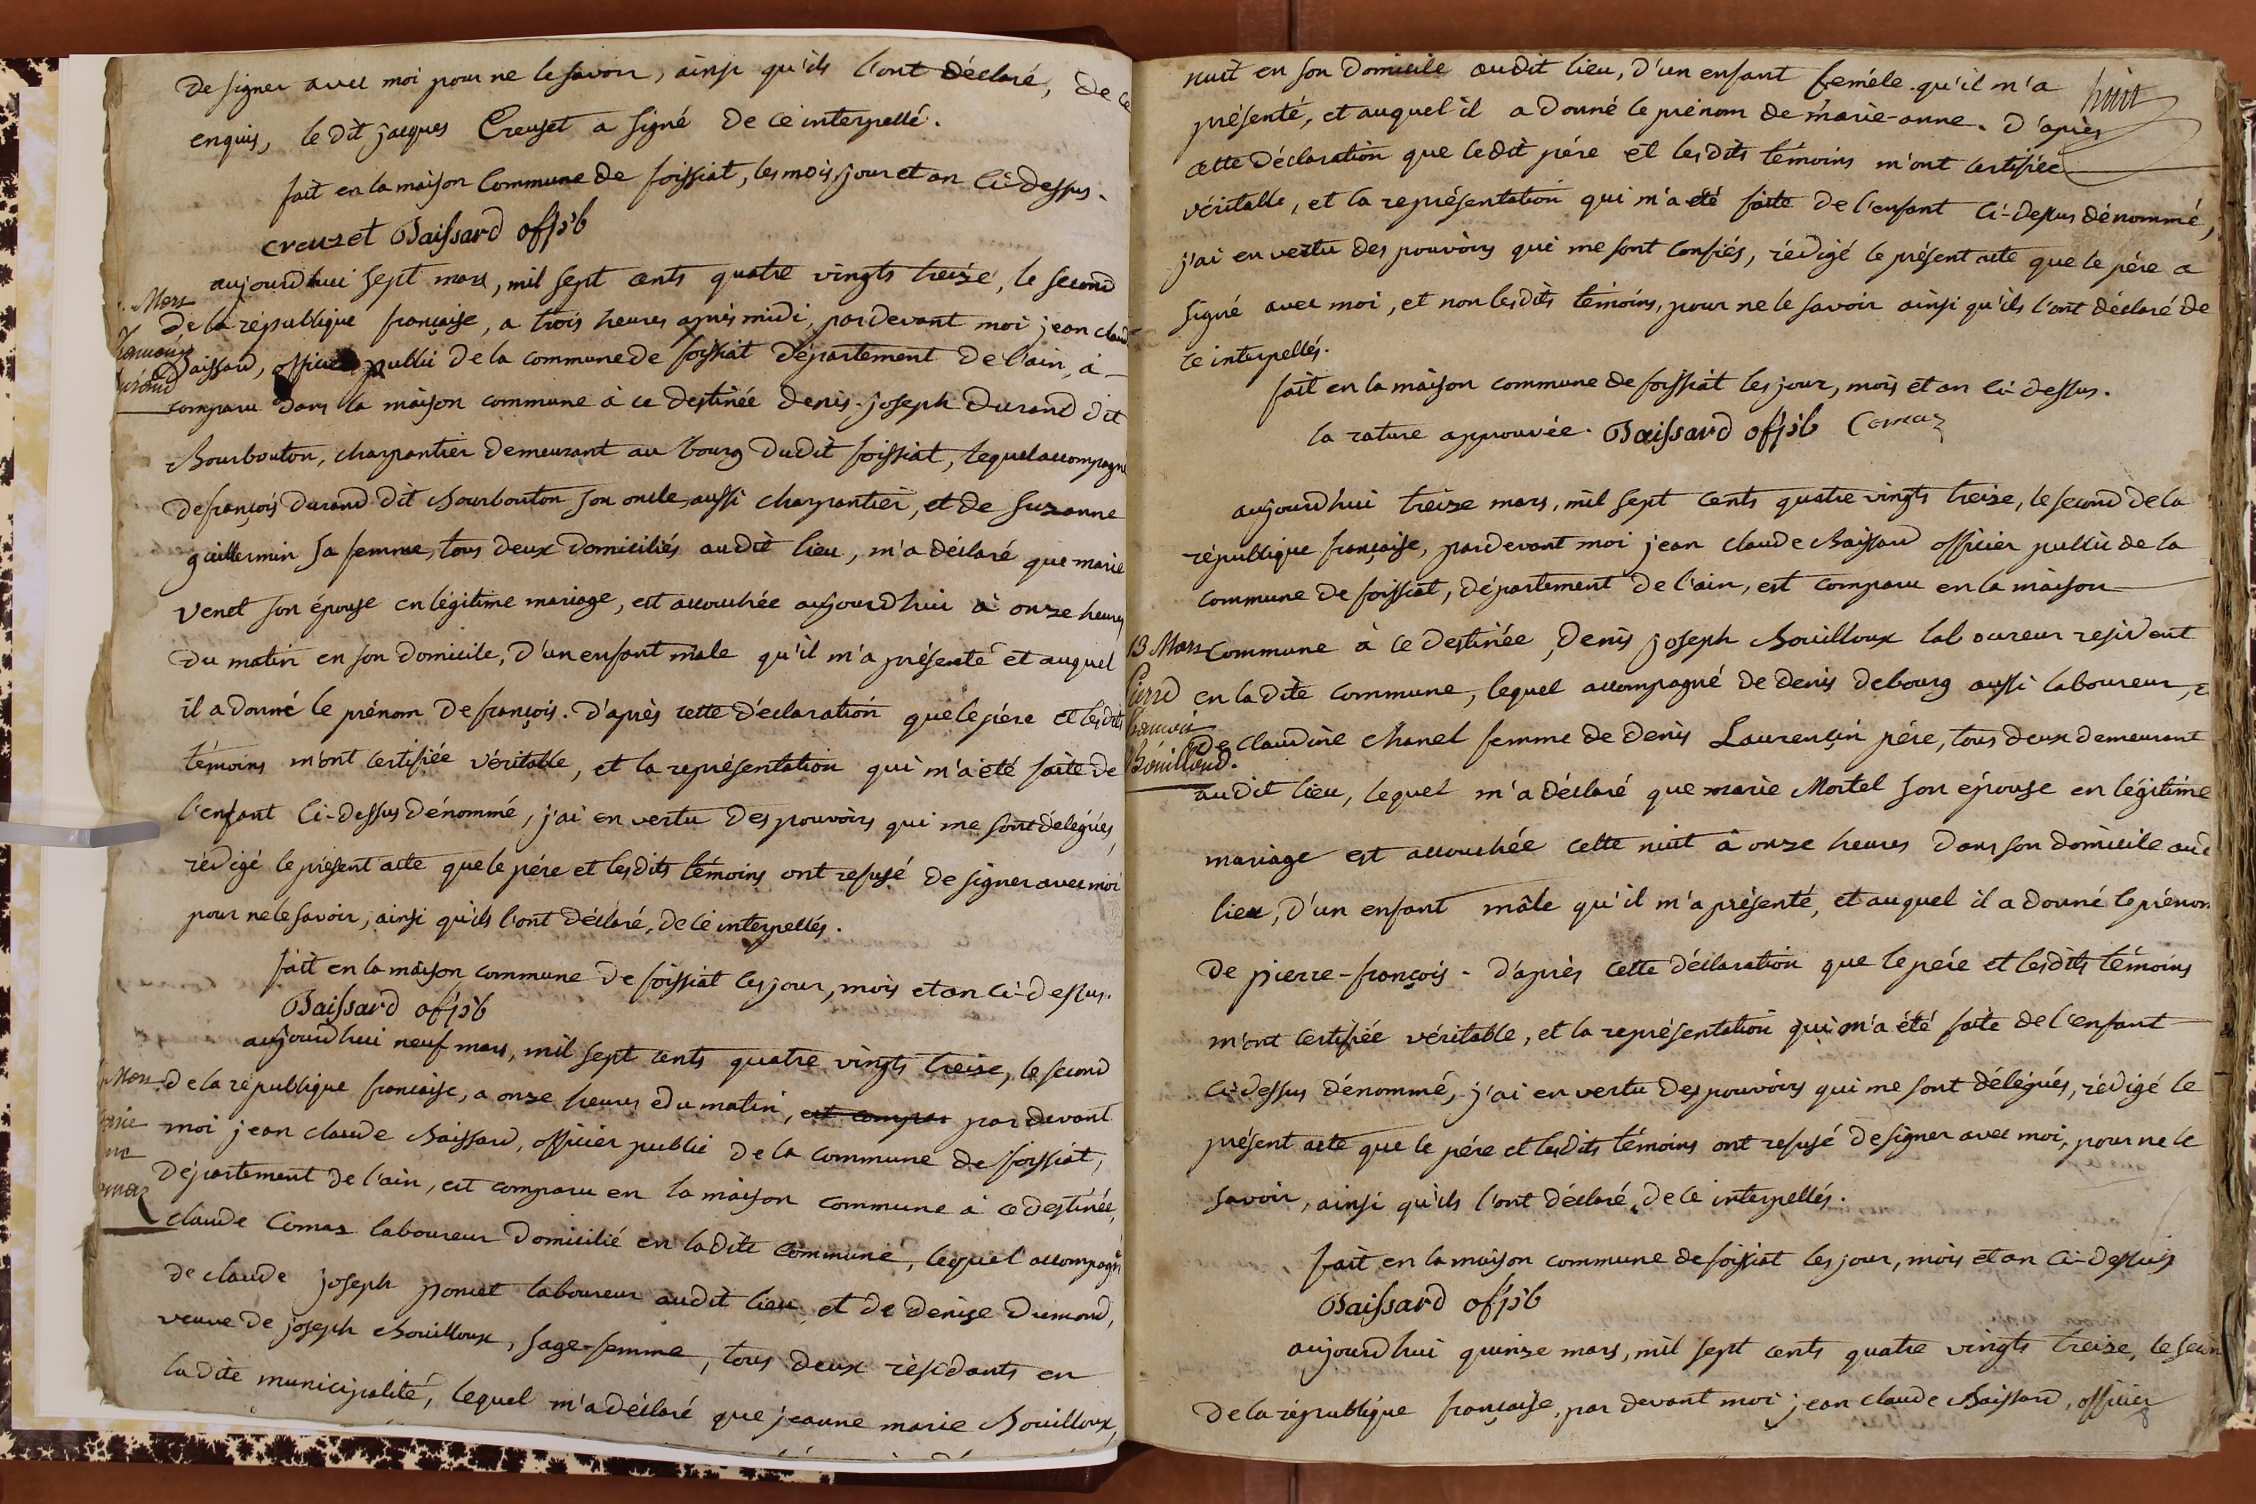 de signer avec moi pour ne le savoir, ainsi qu'ils l'ont déclaré, de ce
enquis, le dit jacques Creuset a signé de ce interpellé.
fait en la maison Commune de foissiat, les mois, jour et an ci-dessus.
creuzet Baissard off pb
Mars
françois
durand
aujourdhui sept mars, mil sept cents quatre vingts treize, le second
de la république française, a trois heures après midi, pardevant moi jean claude
Baissard, officier public de la commune de foissiat département de l'ain, à
comparu dans la maison commune à ce destinée denis-joseph durand dit
Bourbouton, charpantier demeurant au bourg dudit foissiat, lequel accompagné
de françois durand dit Bourbouton son oncle, aussi charpantier, et de suzanne
guillermin sa femme, tous deux domiciliés audit lieu, m'a déclaré que marie
venet son épouse en légitime mariage, est accouchée aujourdhui à onze heures
du matin en son domicile, d'un enfant mâle qu'il m'a présenté et auquel
il a donné le prénom de françois. d'après cette déclaration que le pére et lesdits
témoins m'ont certifiée véritable, et la représentation qui m'a été faite de
l'enfant ci-dessus dénommé, j'ai en vertu des pouvoirs qui me sont délégués,
rédigé le présent acte que le pére et lesdits témoins ont refusé de signer avec moi
pour ne le savoir, ainsi qu'ils l'ont déclaré, de ce interpellés.
fait en la maison commune de foissiat les jour, mois et an ci-dessus.
Baissard off pb
Mars
marie
anne
comaz
aujourdhui neuf mars, mil sept cents quatre vingts treize, le second
de la république francaise, a onze heures du matin, est comparu par devant
moi jean claude Baissard, officier public de la commune de foissiat,
département de l'ain, est comparu en la maison commune à ce destinée,
claude Comaz laboureur domicilié en ladite commune, lequel accompagné
de claude joseph poncet laboureur audit lieu et de denise dumond,
veuve de joseph Bouilloux, sage-femme, tous deux résidants en
ladite municipalité, lequel m'a déclaré que jeanne marie Bouilloux,
huit
nuit en son domicile audit lieu, d'un enfant femêle qu'il m'a
présenté, et auquel il a donné le prénom de marie-anne. d'après
cette déclaration que ledit pére et lesdits témoins m'ont certifiée
véritable, et la représentation qui m'a été faite de l'enfant ci-dessus dénommé,
j'ai en vertu des pouvoirs qui me sont confiés, rédigé le présent acte que le pére a
signé avec moi, et non lesdits témoins, pour ne le savoir ainsi qu'ils l'ont déclaré de
ce interpellés.
fait en la maison commune de foissiat les jour, mois et an ci-dessus.
la rature approuvée. Baissard off pb Comaz
aujourdhui treize mars, mil sept cents quatre vingts treize, le second de la
république française, pardevant moi jean claude Baissard officier public de la
commune de foissiat, département de l'ain, est comparu en la maison
13 Mars
Pierre
françois
Bouilloud.
commune à ce destinée, denis joseph Bouilloux laboureur resident
en ladite commune, lequel accompagné de denis debourg aussi laboureur, et
de claudine chanel femme de denis Laurençin pére, tous deux demeurant
audit lieu, lequel m'a déclaré que marie Mortel son épouse en légitime
mariage est accouchée cette nuit à onze heures dans son domicile audit
lieu, d'un enfant mâle qu'il m'a présenté, et auquel il a donné le prénom
de pierre-françois. d'après cette déclaration que le pére et lesdits témoins
m'ont certifiée véritable, et la représentation qui m'a été faite de l'enfant
ci-dessus dénommé, j'ai en vertu des pouvoirs qui me sont délégués, rédigé le
présent acte que le pére et lesdits témoins ont refusé de signer avec moi, pour ne le
savoir, ainsi qu'ils l'ont déclaré, de ce interpellés.
fait en la maison commune de foissiat les jour, mois et an ci-dessus
Baissard off pb
aujourdhui quinze mars, mil sept cents quatre vingts treize, le second
de la république française, par devant moi jean claude Baissard, officier